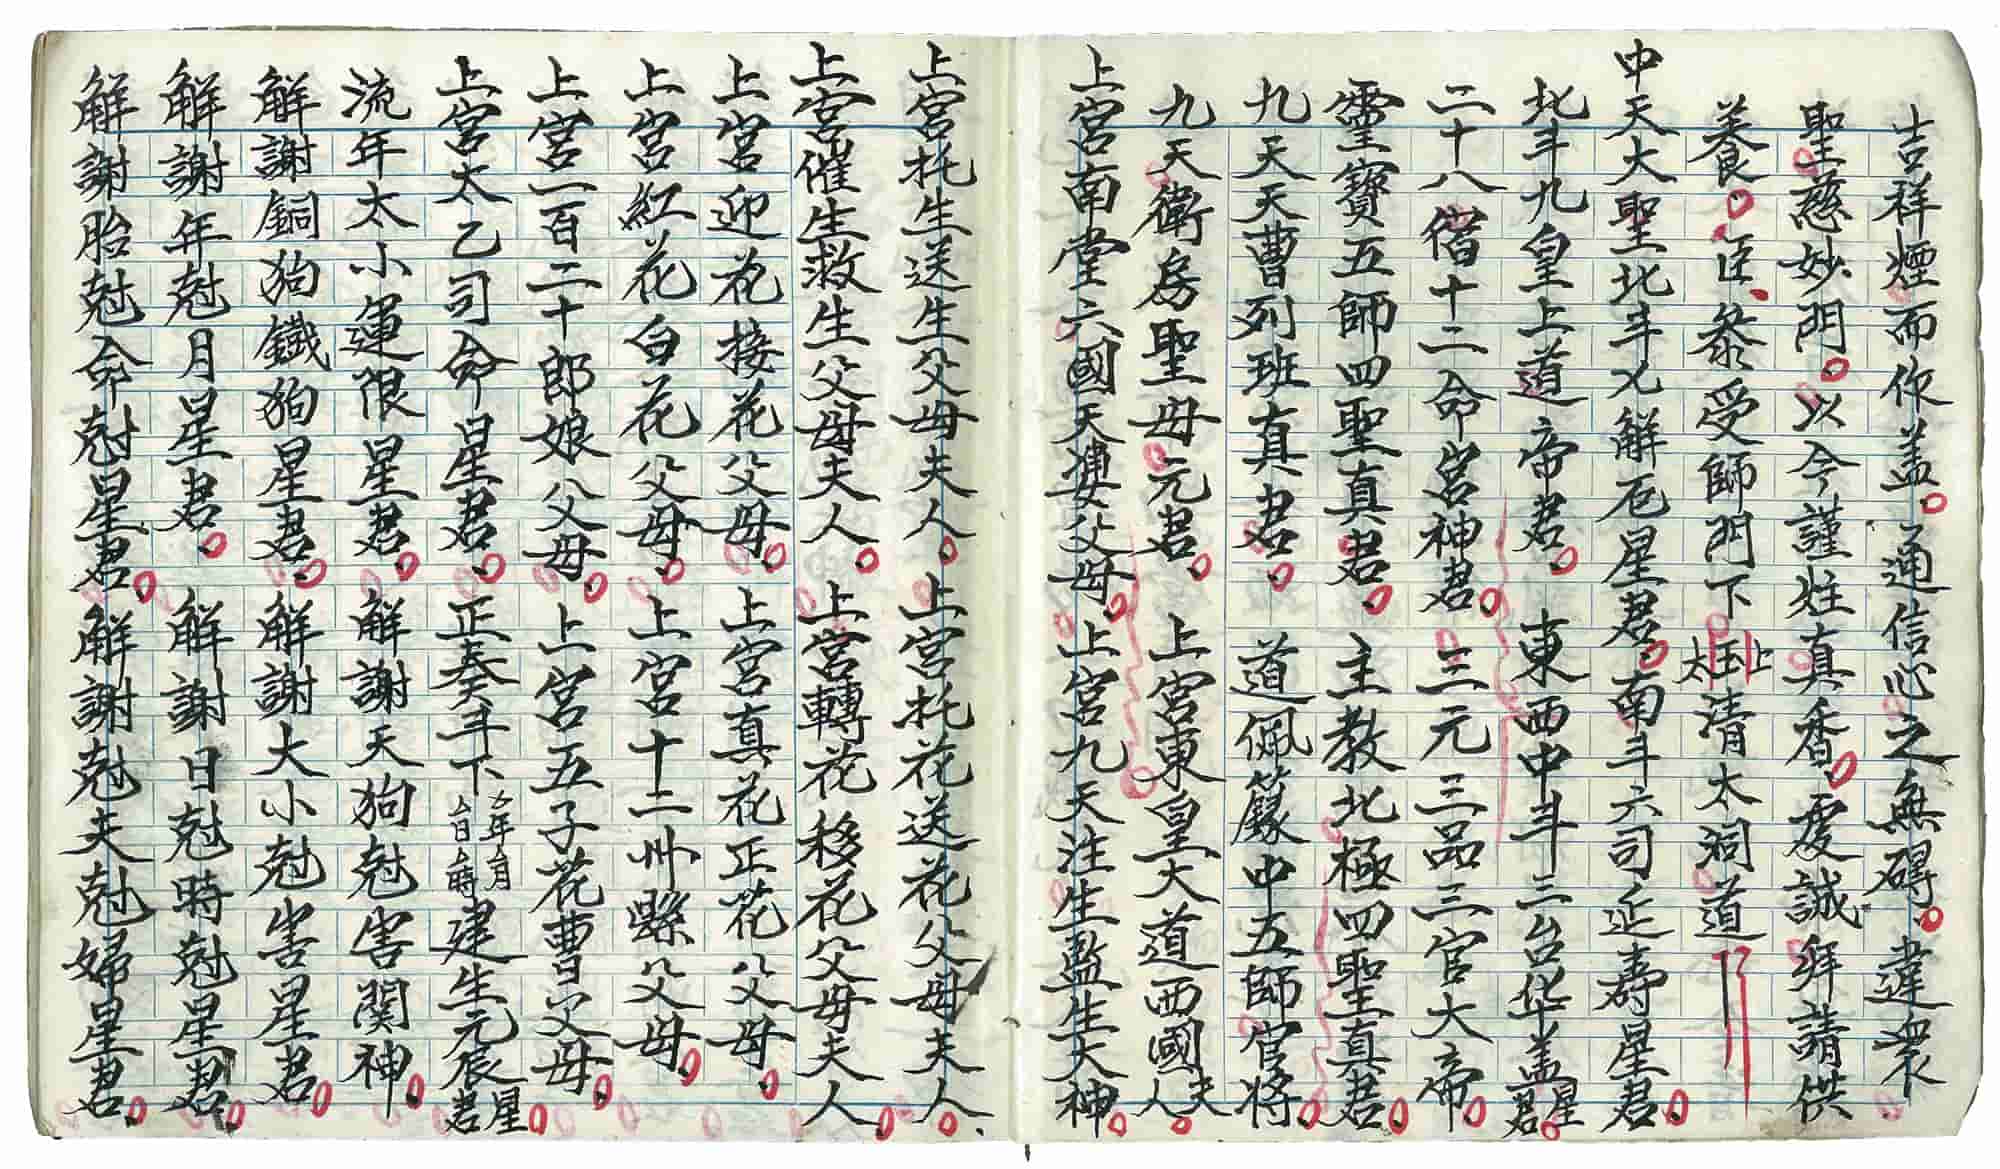 吉祥煙而作盖。通信心之無碍。違衆
聖慈妙門。以今謹炷真香。虔誠拜請供
養。臣、叅受師門下上玉太清太洞道
中天大聖北斗七解厄星君。南斗六司延壽星君。
北斗九皇上道帝君。東西中斗三台华盖星君。
二十八借十二命宮神君。三元三品三官大帝。
靈寶五師四聖真君。主教北極四聖真君。
九天天曹列班真君。道佩籙中五師官將。
九天衛房聖母元君。上宮東皇大道西國夫人。
上宮南堂六國天婆父母。上宮九天注生監生大神。
上宮托生送生父母夫人。上宮托花送花父母夫人。
上宮催生救生父母夫人。上宮轉花移花父母夫人。
上宮迎花接花父母。上宮真花正花父母。
上宮紅花白花父母。上宮十二州縣父母。
上宮一百二十郎娘父母。上宮五子花曹父母。
上宮太乙司命星君。正奏斗下厶年厶月厶日厶時建生元辰星君。
流年太小運限星君。解謝天狗尅害関神。
解謝銅狗鐵狗星君。解謝大小尅害星君。
解謝年尅月星君。解謝日尅時尅星君。
解謝胎尅命尅星君。解謝尅夫尅婦星君。